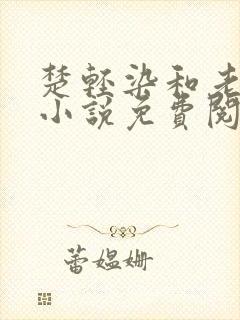 楚轻染和老
小说免費閱
蕾媪姗